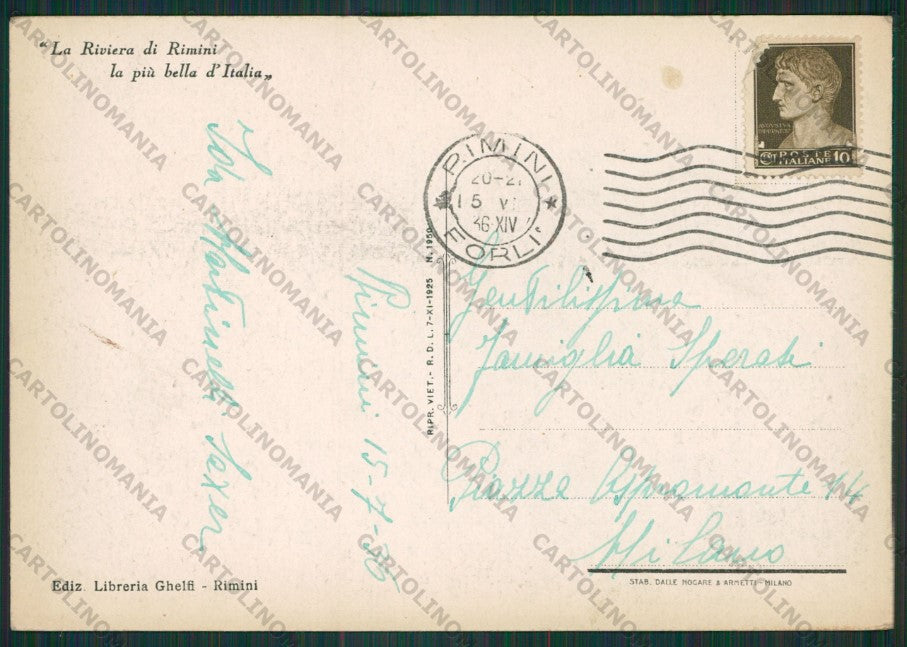 "La Riviera di Rimini
la più bella d'Italia„
RIMINI
20-21
15 VI
36·XIV
FORLI'
AVGVSTVS
POSTE
ITALIANE 10
Gentilissima
Famiglia Sperati
Piazza Aspromonte 44
Milano
Rimini 15-7-36
RIPR. VIET. - R. D. L. 7-XI-1925 N. 1950
Ediz. Libreria Ghelfi - Rimini
STAB. DALLE NOGARE & ARMETTI - MILANO
CARTOLINOMANIA